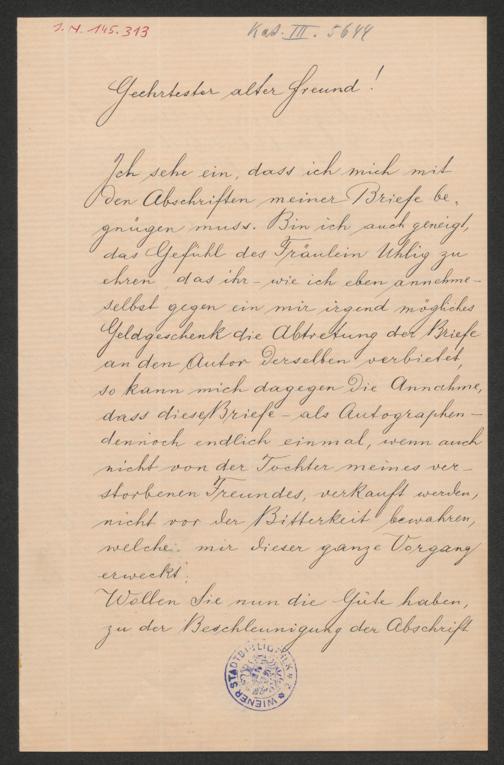 J. N. 145.313
Kas. III. 5644
Geehrtester alter Freund!
Ich sehe ein, dass ich mich mit
den Abschriften meiner Briefe be-
gnügen muss. Bin ich auch geneigt,
das Gefühl des Fräulein Uhlig zu
ehren, das ihr – wie ich eben annehme –
selbst gegen ein mir irgend mögliches
Geldgeschenk die Abtretung der Briefe
an den Autor derselben verbietet,
so kann mich dagegen die Annahme,
dass diese Briefe – als Autographen –
dennoch endlich einmal, wenn auch
nicht von der Tochter meines ver-
storbenen Freundes, verkauft werden,
nicht vor der Bitterkeit bewahren,
welche mir dieser ganze Vorgang
erweckt.
Wollen Sie nun die Güte haben,
zu der Beschleunigung der Abschrift
WIENER STADTBIBLIOTHEK